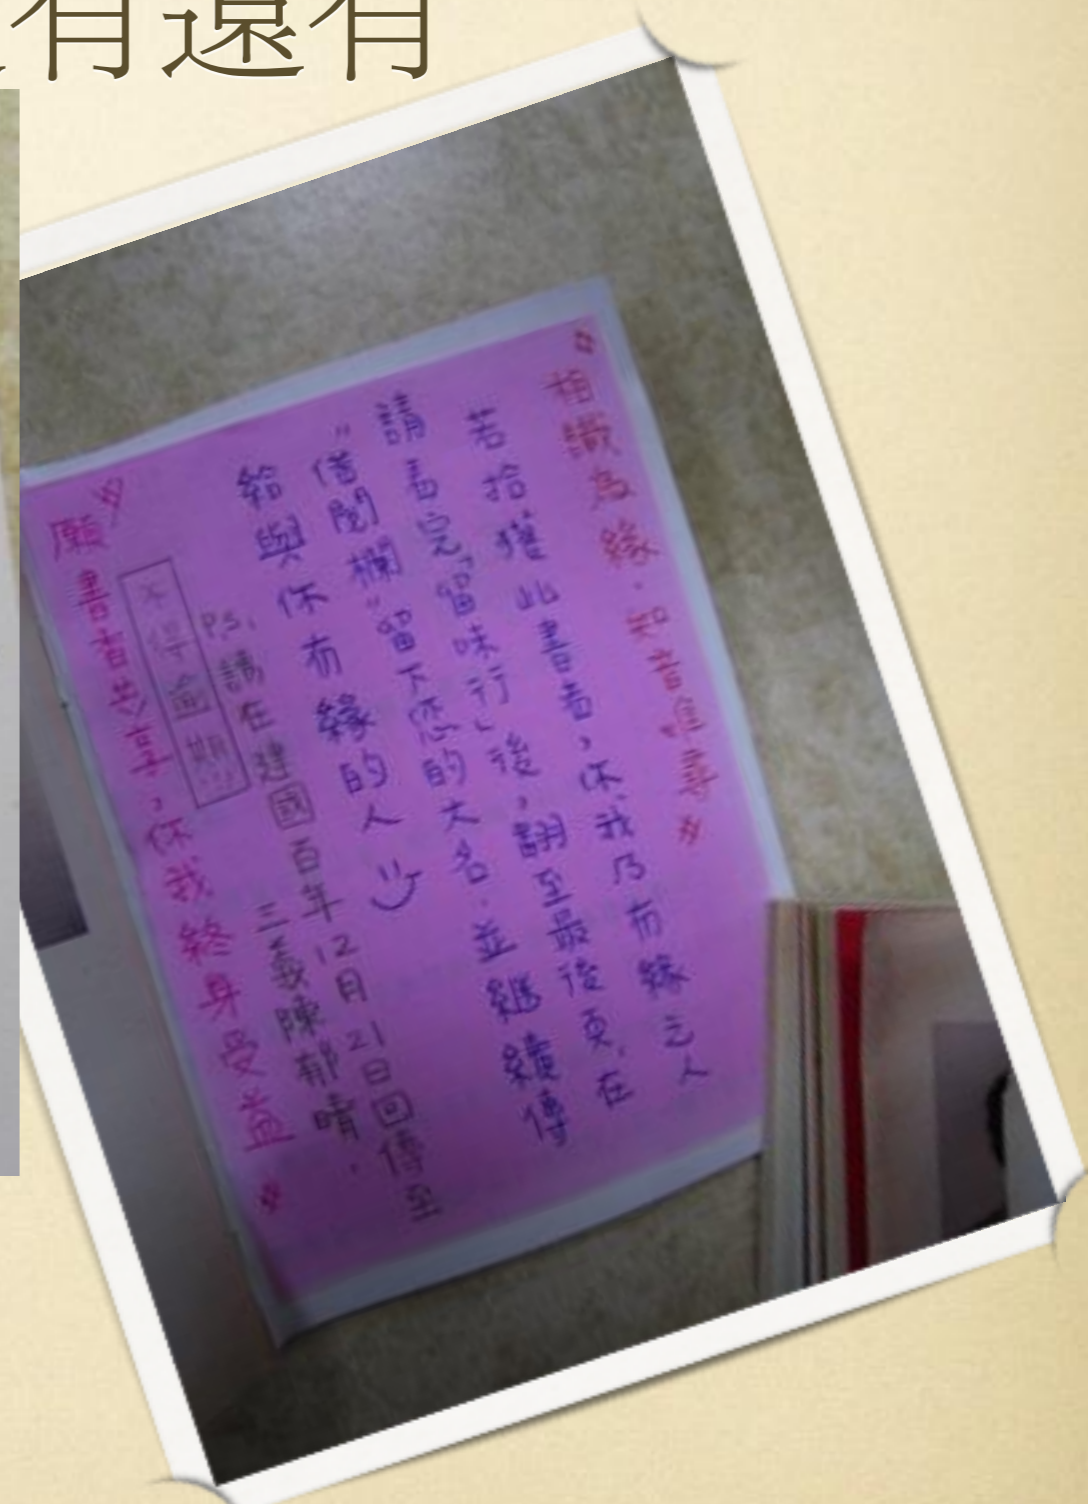 有還有
※相識為緣．知音難尋※
若拾獲此書者，你我乃有緣之人
請看完「留味行」後，翻至最後頁，在
"借閱欄"留下您的大名．並繼續傳
給與你有緣的人
P.S. 請在建國百年12月21日回傳至
三義陳郁晴．
不得逾期
※願書香共享，你我終身受益※